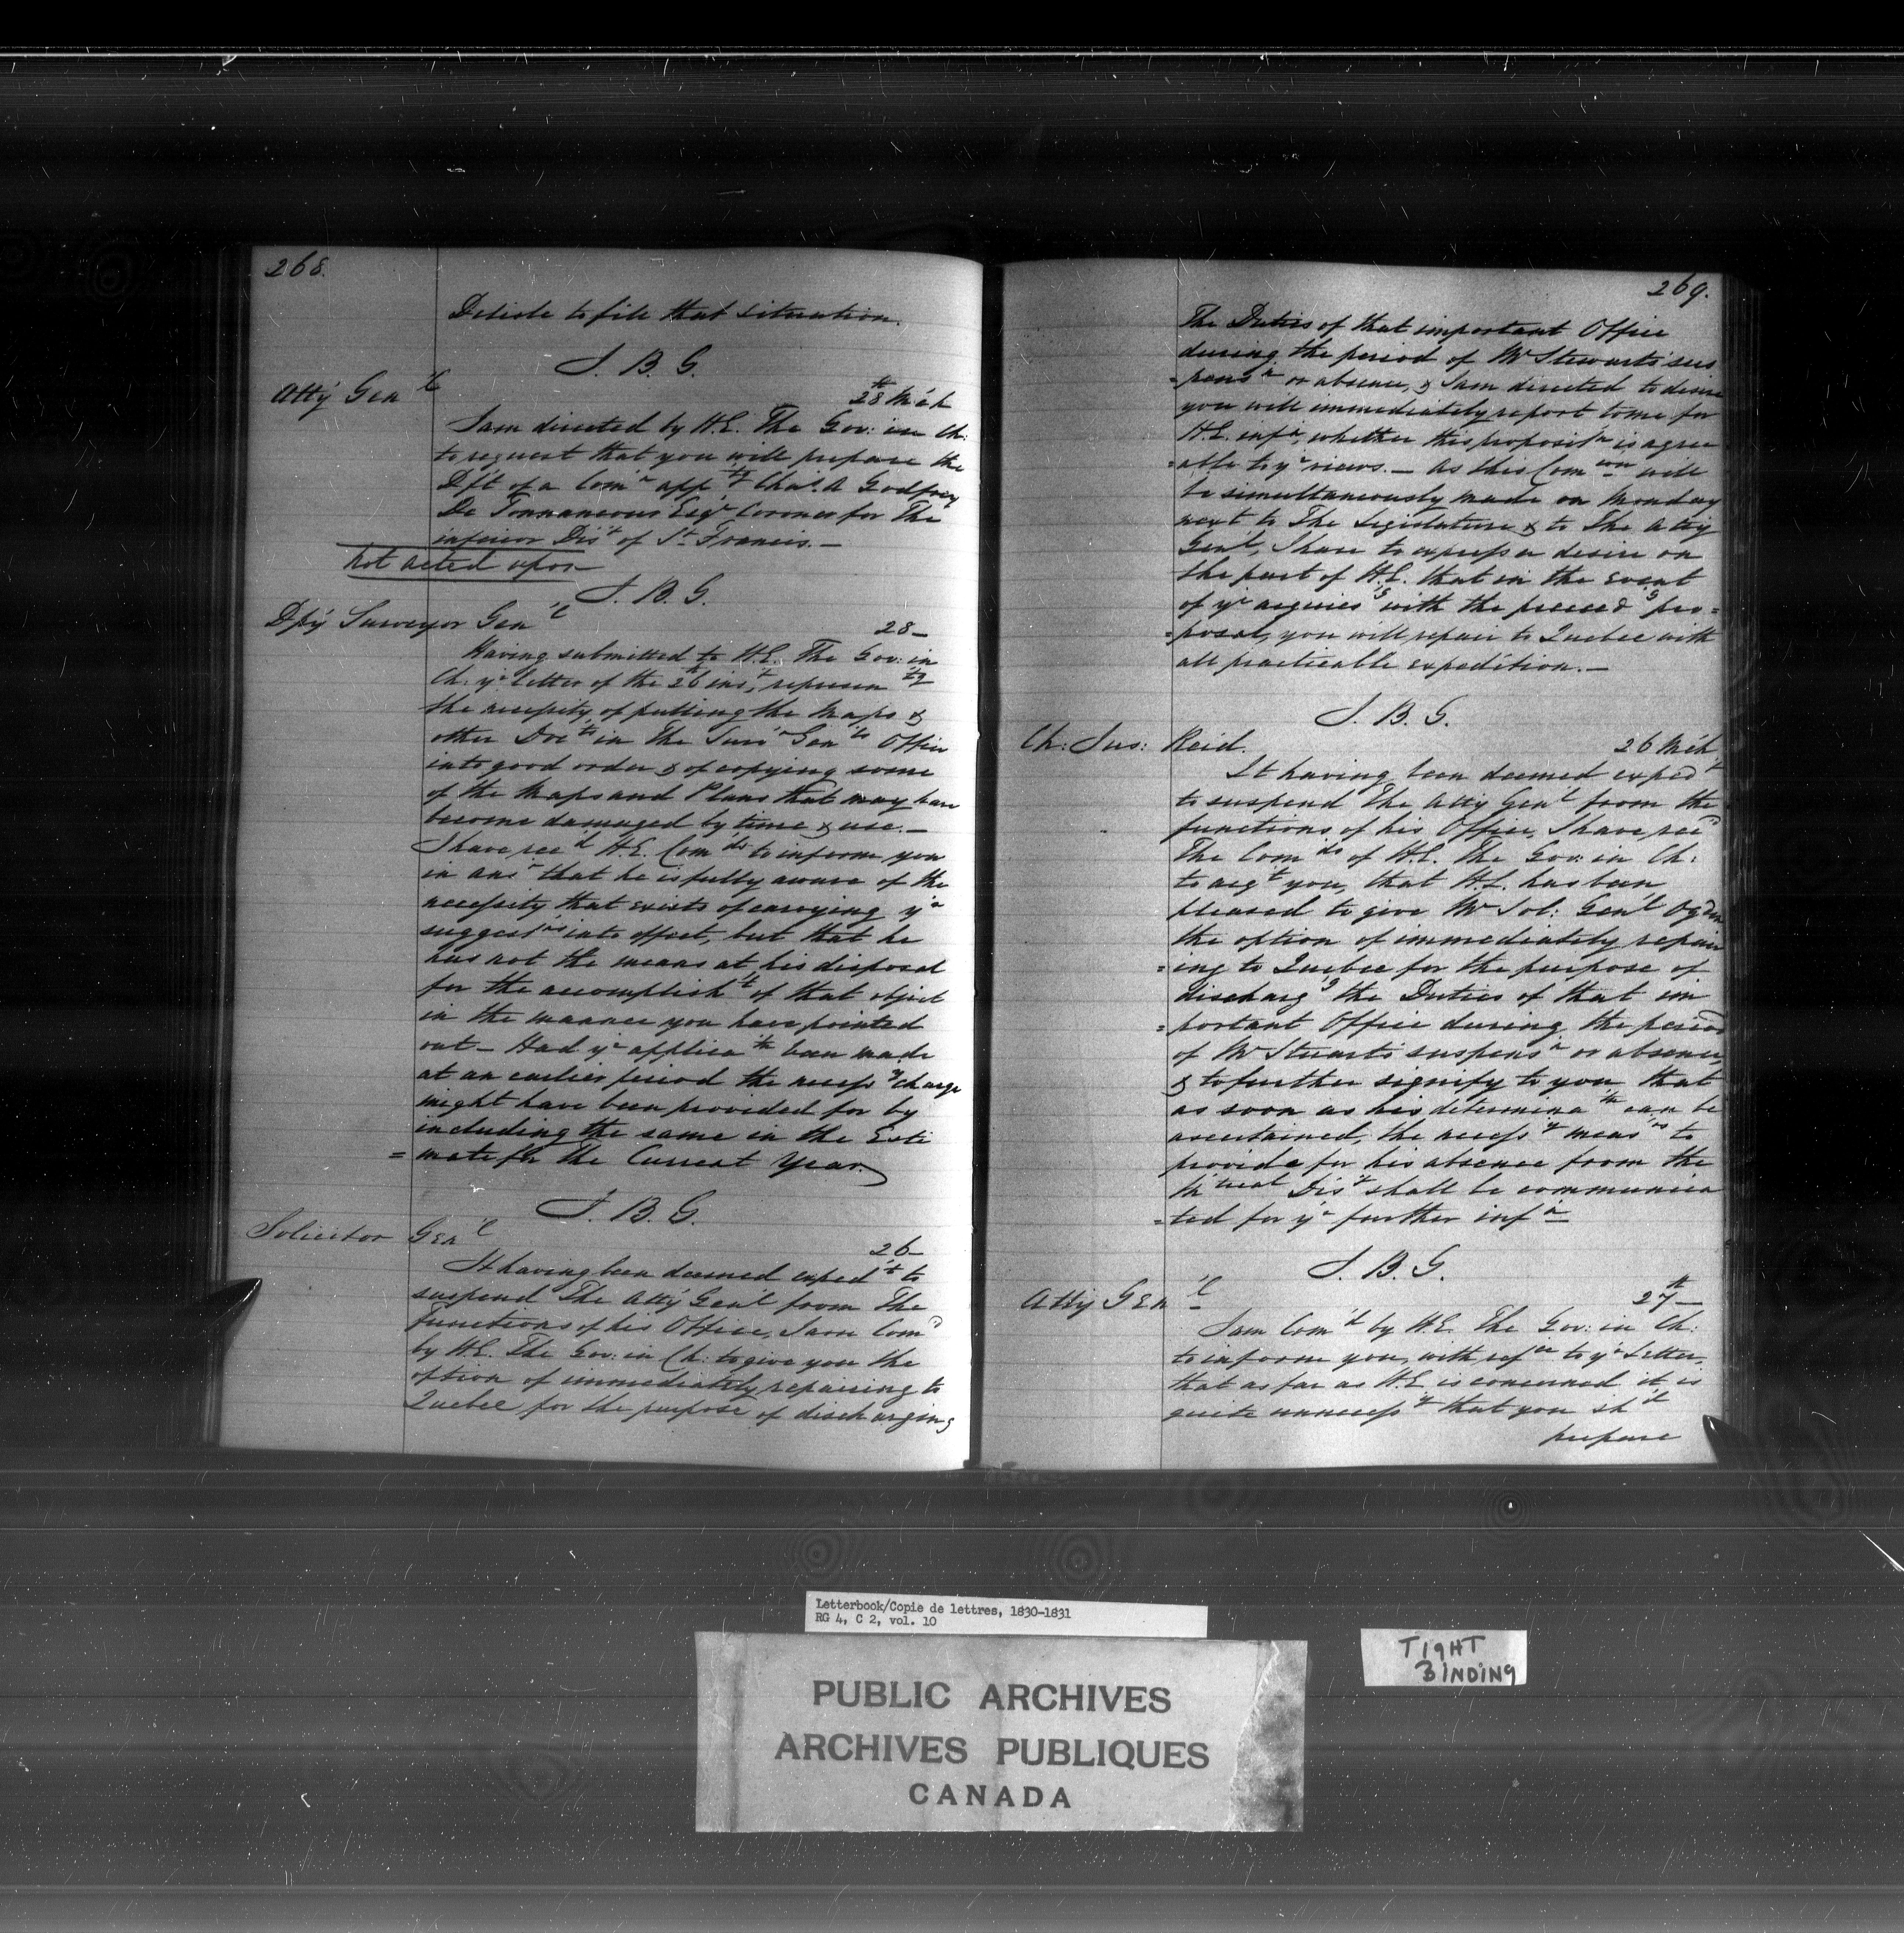 268.
Delisle to fill that situation.
J. B. G.
Atty Gen'l
28th Mch
I am directed by H.E. The Gov: in Ch:
to request that you will prepare the
Dft of a Com'n app'tg Chas. A Godfroy
De Tonnancour Esqr Coroner for The
inferior Dis't of St Francis.—
Not acted upon
J. B. G.
Dpy Surveyor Gen'l
28—
Having submitted to H.E. The Gov: in
Ch: yr letter of the 26th inst, represen'tg
the necessity of putting the Maps &
other Doc'ts in The Surv'r Gen'ls Office
into good order & of copying some
of the Maps and Plans that may have
become damaged by time & use.—
I have rec'd H.E. Com'ds to inform you
in ans'r that he is fully aware of the
necessity that exists of carrying yr
suggest'ns into effect, but that he
has not the means at his disposal
for the accomplish't of that object
in the manner you have pointed
out— Had yr applica'tn been made
at an earlier period the necess'y charge
might have been provided for by
including the same in the Esti
=mate for the Current Year.
J. B. G.
Solicitor Gen'l
26—
It having been deemed exped'nt to
suspend The Atty Gen'l from The
Functions of his Office, I am Com'd
by H.E. The Gov: in Ch: to give you the
option of immediately repairing to
Quebec for the purpose of discharging
269.
The Duties of that important Office
during the period of Mr Stewarts sus
=pens'n or absence, & I am directed to desire
you will immediately report to me for
H.E. inf'n, whether this proposit'n is agree
=able to yr views.— As this Com'con will
be simultaneously made on Monday
next to The Legislature & to The Atty
Gen'l, I have to express a desire on
the part of H.E. that in the event
of yr acquiesc'g with the preced'g pro=
=posal, you will repair to Quebec with
all practicable expedition.—
J. B. G.
Ch: Jus: Reid.
26 Mch
It having been deemed exped't
to suspend The Atty Gen'l from the
functions of his Office, I have rec'd
The Com'ds of H.E. The Gov: in Ch:
to acq't you, that H.E. has been
pleased to give Mr Sol: Gen'l Ogden
the option of immediately repair
=ing to Quebec for the purpose of
discharg'g the Duties of that im
=portant Office during the period
of Mr Stuarts suspens'n or absence,
& to further signify to you that
as soon as his determina'tn can be
ascertained, the necess'y meas'rs to
provide for his absence from the
M'treal Dis't shall be communica
=ted for yr further inf'n
J. B. G.
Atty Gen'l
27th—
I am Com'd by H.E. The Gov: in Ch:
to inform you, with ref'ce to yr Letter,
that as far as H.E. is concerned it is
quite unnecess'y that you sh'd
prepare
Letterbook/Copie de lettres, 1830-1831
RG 4, C 2, vol. 10
PUBLIC ARCHIVES
ARCHIVES PUBLIQUES
CANADA
TIGHT
BINDING